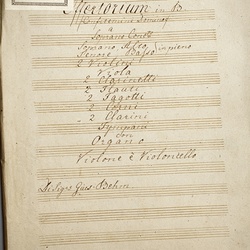 Offertorium in B
Confitemini Domino
a
Soprano Conc:
Soprano Alto
Tenore Basso in pieno
2 Violini
Viola
2 Clarinetti
2 Flauti
2 Fagotti
2 Corni
2 Clarini
Tympani
con
Organo
Violone è Violoncello
Del Sigre Gius: Böhm